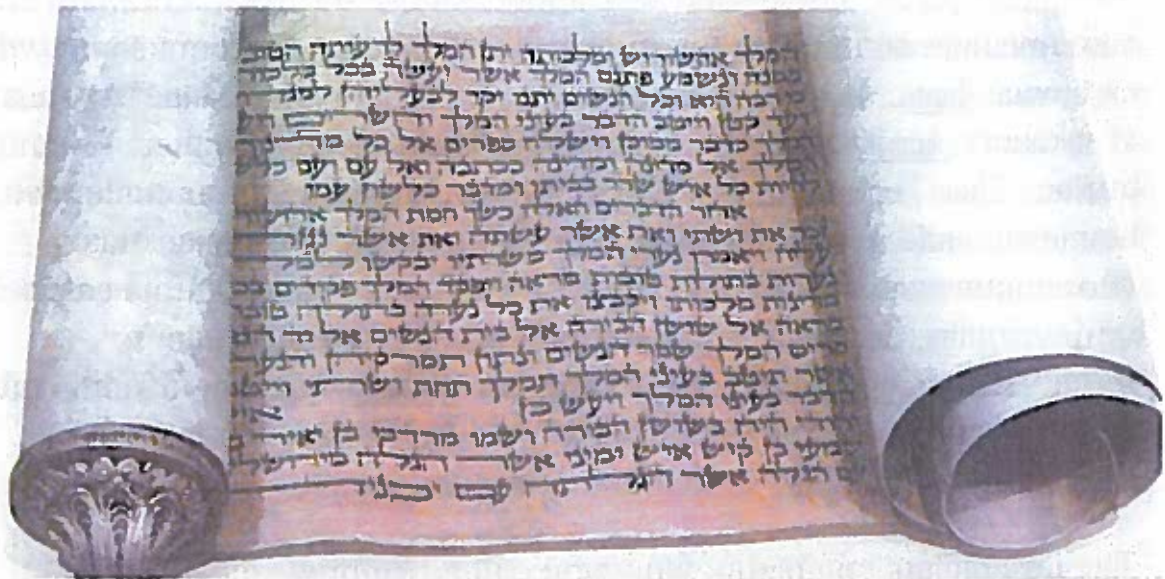 המלך אחשורוש ומלכותה יתן המלך לרעותה
ונשמע פתגם המלך אשר יעשה בכל
רבה היא וכל הנשים יתנו יקר לבעליהן
ועד קטן וייטב הדבר בעיני המלך והשרים
כדבר ממוכן וישלח ספרים אל כל
המלך אל מדינה ומדינה ככתבה ואל עם ועם
להיות כל איש שרר בביתו ומדבר כלשון עמו
אחר הדברים האלה כשך חמת המלך
את ושתי ואת אשר עשתה ואת אשר
ויאמרו נערי המלך משרתיו יבקשו
נערות בתולות טובות מראה ויפקד המלך פקידים
מדינות מלכותו ויקבצו את כל נערה בתולה
מראה אל שושן הבירה אל בית הנשים אל יד
סריס המלך שמר הנשים ונתון תמרקיהן
אשר תיטב בעיני המלך תמלך תחת ושתי
הדבר בעיני המלך ויעש כן
יהודי היה בשושן הבירה ושמו מרדכי בן יאיר
בן קיש איש ימיני אשר הגלה
הגלה אשר הגלתה עם יכניה